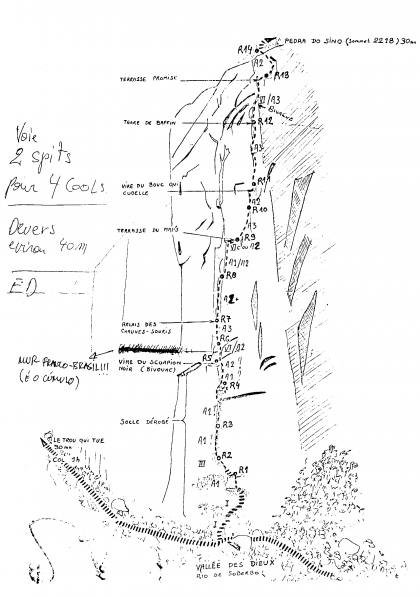 PEDRA DO SINO (Sommet 2218) 30m
R14
A2
R13
TERRASSE PROMISE
VI/A3
BIVOUAC
TERRE DE BAFFIN
R12
A3
Voie
2 spits
pour 4 COOLS
VIRE DU BOUC QUI
CUBELLE
R11
A2
R10
A3
Dévers
environ 40m
TERRASSE DU MAIS
R9
R8
A1/A2
ED
A2+
RELAIS DES
CHAUVES-SOURIS
R7
A3
R6
VI/A2
MUR FRANCO-BRASIL!!!
(É O CÚMULO)
VIRE DU SCORPION
NOIR (BIVOUAC)
R5
A2
A1
R4
SOCLE DÉROBÉ
A1
R3
A1
R2
III
R1
A1
I
I
LE TROU QUI TUE
30mn
COL 1h
VALLÉE DES DIEUX
RIO DE SOBERBO